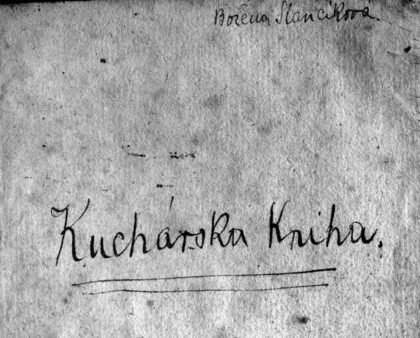 Božena Slancikova.
Kuchárska Kniha.